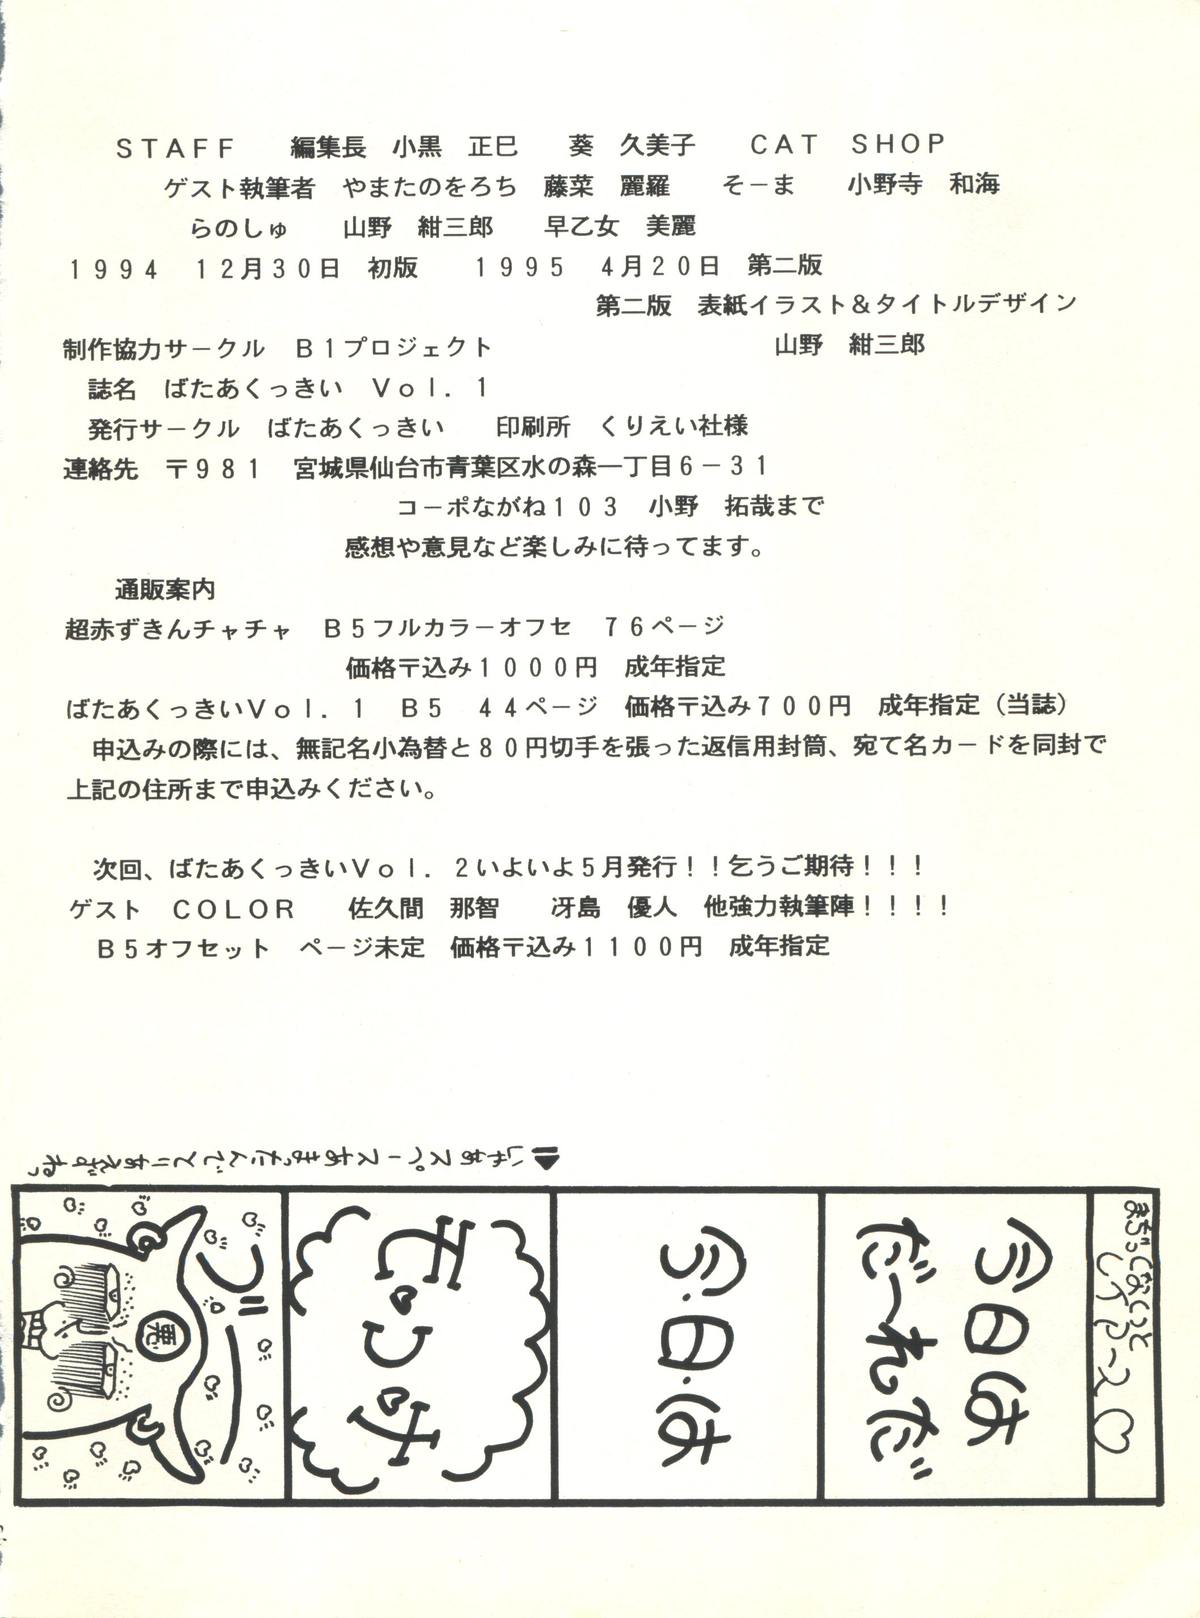 STAFF　編集長　小黒　正巳　葵　久美子　CAT　SHOP
ゲスト執筆者　やまたのをろち　藤菜　麗羅　そーま　小野寺　和海
らのしゅ　山野　紺三郎　早乙女　美麗
1994　12月30日　初版　1995　4月20日　第二版
第二版　表紙イラスト＆タイトルデザイン
山野　紺三郎
制作協力サークル　B1プロジェクト
誌名　ばたあくっきい　Vol．1
発行サークル　ばたあくっきい　印刷所　くりえい社様
連絡先　〒981　宮城県仙台市青葉区水の森一丁目6－31
コーポながね103　小野　拓哉まで
感想や意見など楽しみに待ってます。
通販案内
超赤ずきんチャチャ　B5フルカラーオフセ　76ページ
価格〒込み1000円　成年指定
ばたあくっきいVol．1　B5　44ページ　価格〒込み700円　成年指定（当誌）
申込みの際には、無記名小為替と80円切手を張った返信用封筒、宛て名カードを同封で
上記の住所まで申込みください。
次回、ばたあくっきいVol．2いよいよ5月発行！！乞うご期待！！！
ゲスト　COLOR　佐久間　那智　冴島　優人　他強力執筆陣！！！！
B5オフセット　ページ未定　価格〒込み1100円　成年指定
今日は
だーれだ
今・日・は
悪